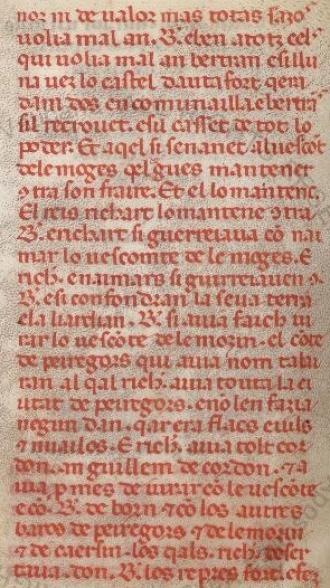 nor ni de ualor mas totas sazos
uolia mal an. B. eben atotz cels
qui uolia mal an bertran esillu
na uez lo castel dautafort qera
dam dos en comunailla e bertrā
sil recrouet. esil casset de tot lo
poder. Et aqel si senanet al uescōt
de lemoges qel degues mantener
ꝯtra son fraire. Et el lo mantenc.
El reis richart lo mantenc ꝯtra
B. en richart si guerreiaua cō nai
mar lo uescomte de lemoges. E
rich. en aimars si guerreiauen ꝯ
B. esi confondian la seua terra
e la il ardian. B. si auia faich iu
rar lo uescōte de lemozin. el cōte
de peiregors qui auia nom talai
ran al qal rich. auia touta la ci
utat de peiregors. e nō len fazia
negun dan. qar era flacs e uils
⁊ nuailos. E rich. auia tolt gor
don. an guillem de gordon. ⁊ a
uia promes de iurar cō le uescōte
e cō. B. de born ⁊ cō los autres
baros de peiregors ⁊ de lemozin
⁊ de caersin. los qals. rich. deser
taua. don. B. los repres fort. e fez